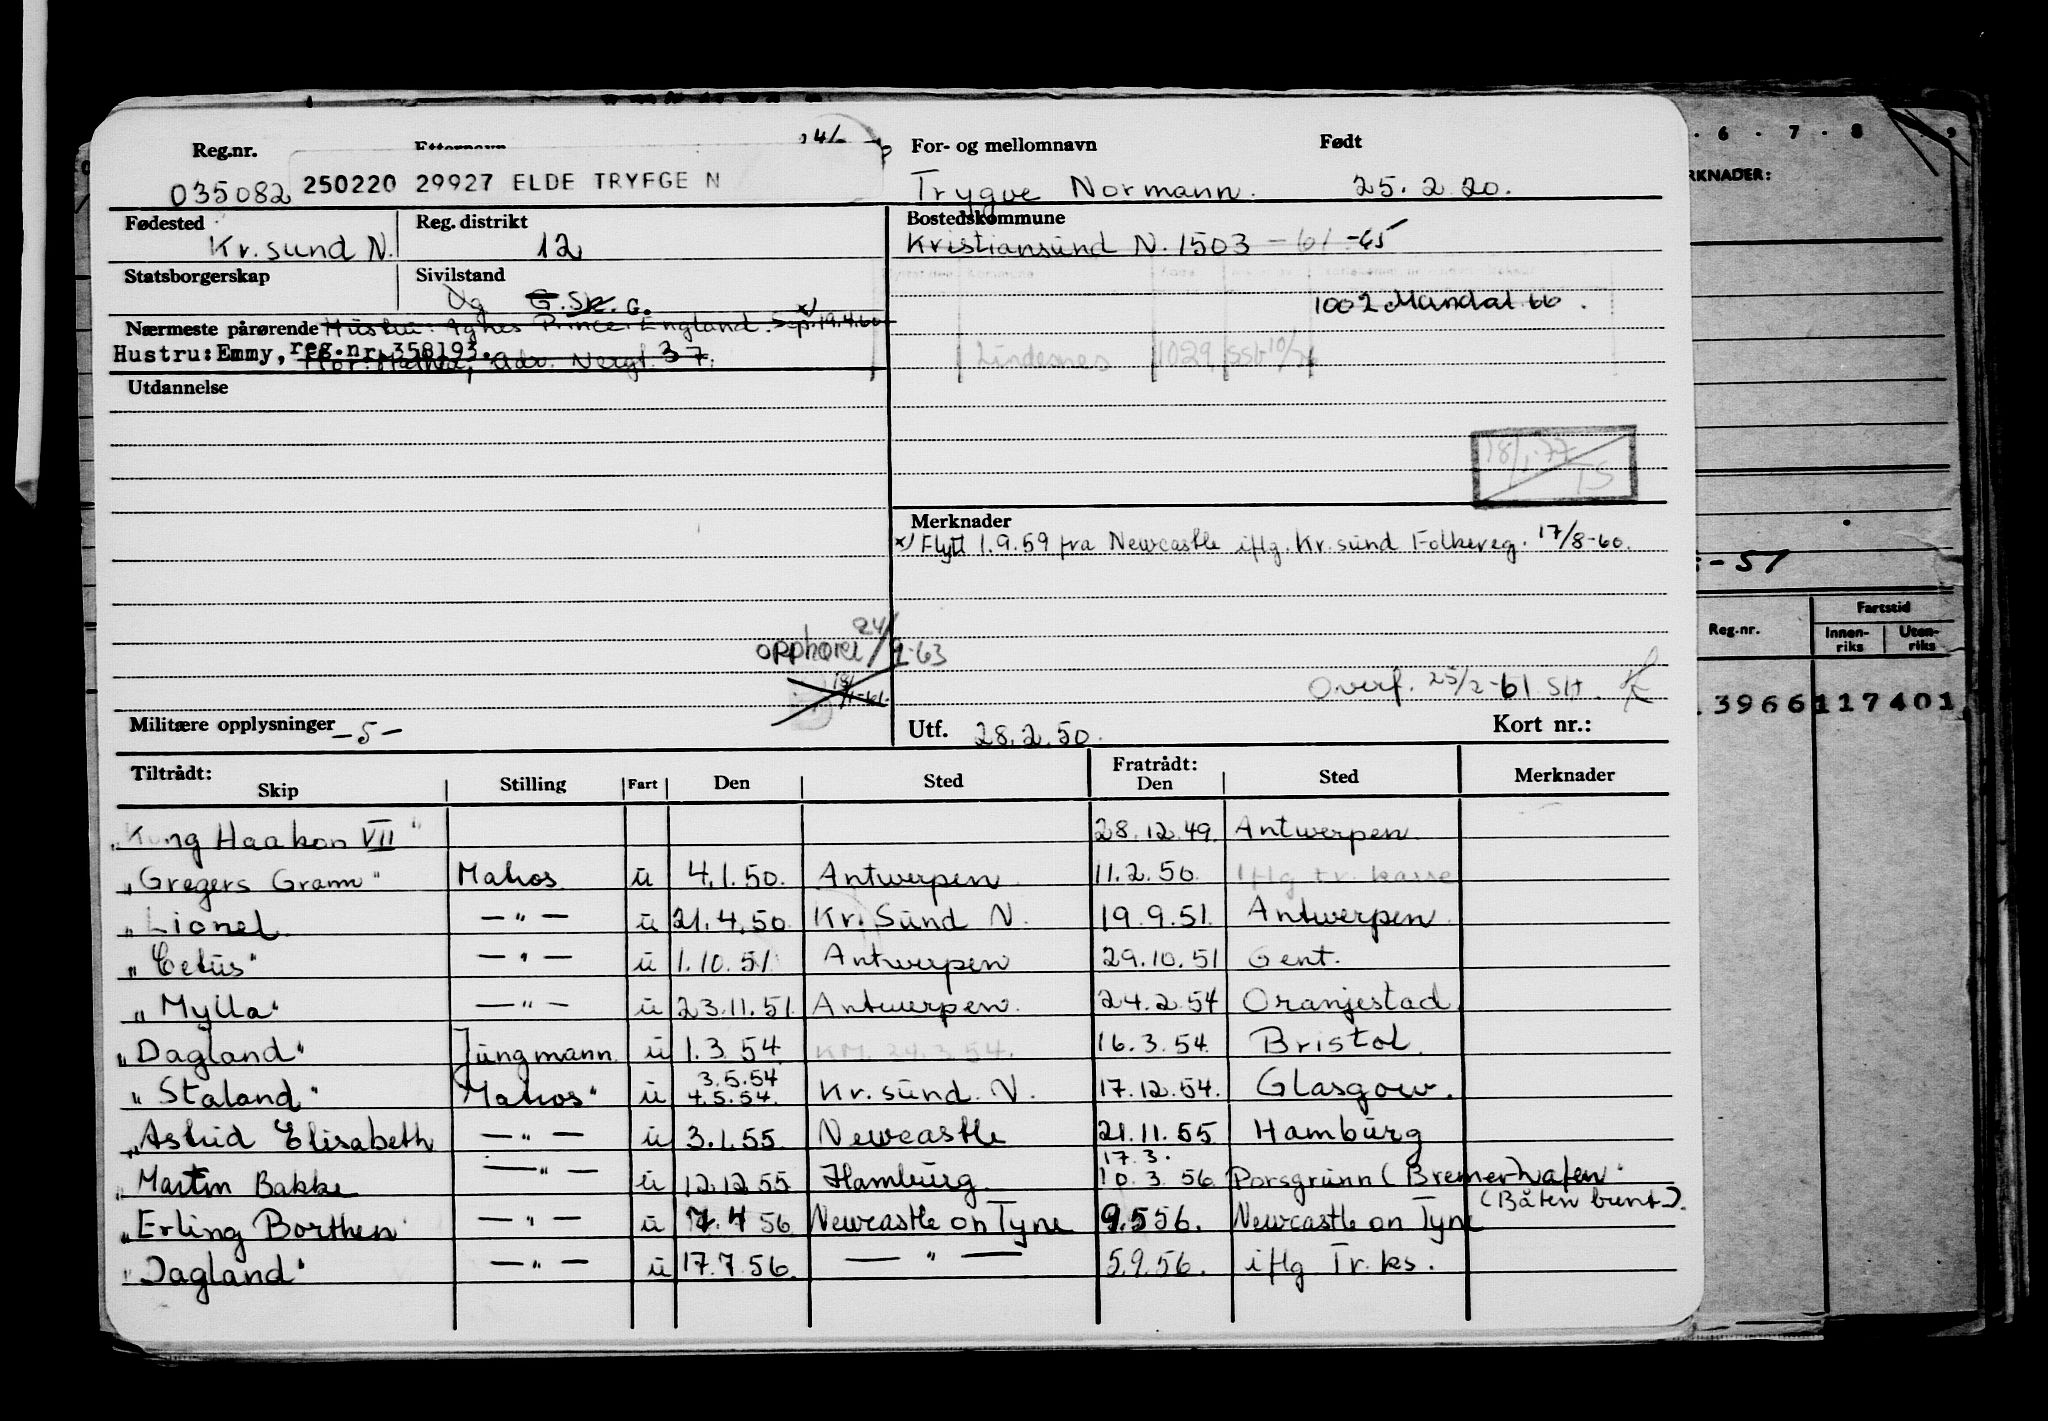 Reg.nr. Etternavn For- og mellomnavn Født
035082 250220 29927 ELDE TRYFGE N Trygve Normann. 25.2.20.
Fødested Reg. distrikt Bostedskommune
Kr.sund N. 12 Kristiansund N. 1503 -61-65
Statsborgerskap Sivilstand
Ug G. Sk. G. 1002 Mandal 66.
Nærmeste pårørende Hustru: Agnes Prince England. Sep. 19.4.60 x)
Hustru: Emmy, reg.nr. 358193. Lindesnes 1029
Mor: adr. Nergt. 37.
Utdannelse
18/1-77 TS
Merknader
x) Flytt 1.9.59 fra Newcastle iflg. Kr.sund Folkereg. 17/8-60.
opphøret 24/1-63
Overf. 25/2-61 SH.
Militære opplysninger -5- Utf. 28.2.50. Kort nr.:
Tiltrådt: Fratrådt:
Skip Stilling Fart Den Sted Den Sted Merknader
"Kong Haakon VII" 28.12.49. Antwerpen
"Gregers Gram" Matros u 4.1.50. Antwerpen 11.2.50. iflg tr. kasse
"Lionel -"- u 21.4.50 Kr. Sund N. 19.9.51. Antwerpen
"Cetus" -"- u 1.10.51 Antwerpen 29.10.51 Gent.
"Mylla" -"- u 23.11.51. Antwerpen. 24.2.54 Oranjestad.
"Dagland" Jungmann u 1.3.54 KM. 24.3.54. 16.3.54. Bristol.
3.5.54
"Staland" Matros" u 4.5.54. Kr.sund. N. 17.12.54. Glasgow.
"Astrid Elisabeth -"- u 3.1.55 Newcastle 21.11.55 Hamburg
17.3.
"Martin Bakke -"- u 12.12.55 Hamburg. 10.3.56 Porsgrunn (Bremerhafen
(Båten brent).
"Erling Borthen" -"- u 17.4 56 Newcastle on Tyne 9.5 56. Newcastle on Tyne
"Dagland" -"- u 17.7.56. -"- 5.9.56. iflg Tr.ks.
6 7 8 9
RKNADER:
-51
Reg.nr. Fartstid
Innen-riks Uten-riks
3966117401